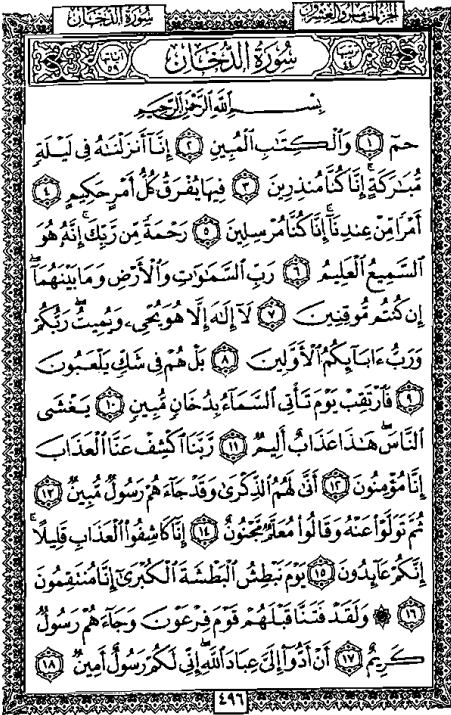 سُورَةُ الدُّخَانِ
الجزء الخامس والعشرون
آياتها ٥٩
سُورَةُ الدُّخَانِ
ترتيبها ٤٤
بِسْمِ اللَّهِ الرَّحْمَٰنِ الرَّحِيمِ
حمٓ ١ وَٱلْكِتَٰبِ ٱلْمُبِينِ ٢ إِنَّآ أَنزَلْنَٰهُ فِى لَيْلَةٍ
مُّبَٰرَكَةٍ ۚ إِنَّا كُنَّا مُنذِرِينَ ٣ فِيهَا يُفْرَقُ كُلُّ أَمْرٍ حَكِيمٍ ٤
أَمْرًا مِّنْ عِندِنَآ ۚ إِنَّا كُنَّا مُرْسِلِينَ ٥ رَحْمَةً مِّن رَّبِّكَ ۚ إِنَّهُۥ هُوَ
ٱلسَّمِيعُ ٱلْعَلِيمُ ٦ رَبِّ ٱلسَّمَٰوَٰتِ وَٱلْأَرْضِ وَمَا بَيْنَهُمَآ ۖ
إِن كُنتُم مُّوقِنِينَ ٧ لَآ إِلَٰهَ إِلَّا هُوَ يُحْىِۦ وَيُمِيتُ ۖ رَبُّكُمْ
وَرَبُّ ءَابَآئِكُمُ ٱلْأَوَّلِينَ ٨ بَلْ هُمْ فِى شَكٍّ يَلْعَبُونَ
٩ فَٱرْتَقِبْ يَوْمَ تَأْتِى ٱلسَّمَآءُ بِدُخَانٍ مُّبِينٍ ١٠ يَغْشَى
ٱلنَّاسَ ۖ هَٰذَا عَذَابٌ أَلِيمٌ ١١ رَّبَّنَا ٱكْشِفْ عَنَّا ٱلْعَذَابَ
إِنَّا مُؤْمِنُونَ ١٢ أَنَّىٰ لَهُمُ ٱلذِّكْرَىٰ وَقَدْ جَآءَهُمْ رَسُولٌ مُّبِينٌ ١٣
ثُمَّ تَوَلَّوْا۟ عَنْهُ وَقَالُوا۟ مُعَلَّمٌ مَّجْنُونٌ ١٤ إِنَّا كَاشِفُوا۟ ٱلْعَذَابِ قَلِيلًا ۚ
إِنَّكُمْ عَآئِدُونَ ١٥ يَوْمَ نَبْطِشُ ٱلْبَطْشَةَ ٱلْكُبْرَىٰٓ إِنَّا مُنتَقِمُونَ
١٦ ۞ وَلَقَدْ فَتَنَّا قَبْلَهُمْ قَوْمَ فِرْعَوْنَ وَجَآءَهُمْ رَسُولٌ
كَرِيمٌ ١٧ أَنْ أَدُّوٓا۟ إِلَىَّ عِبَادَ ٱللَّهِ ۖ إِنِّى لَكُمْ رَسُولٌ أَمِينٌ ١٨
٤٩٦